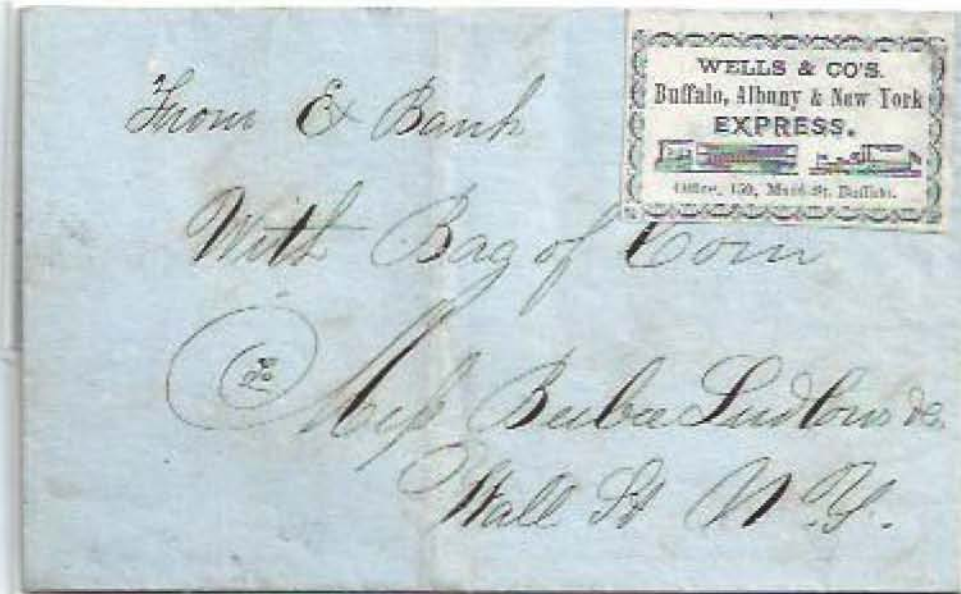 WELLS & CO'S.
Buffalo, Albany & New York
EXPRESS.
Office, 150, Main St. Buffalo.
From Ex Bank
With Bag of Coin
Mess Beebee Ludlow & Co.
Wall St N.Y.